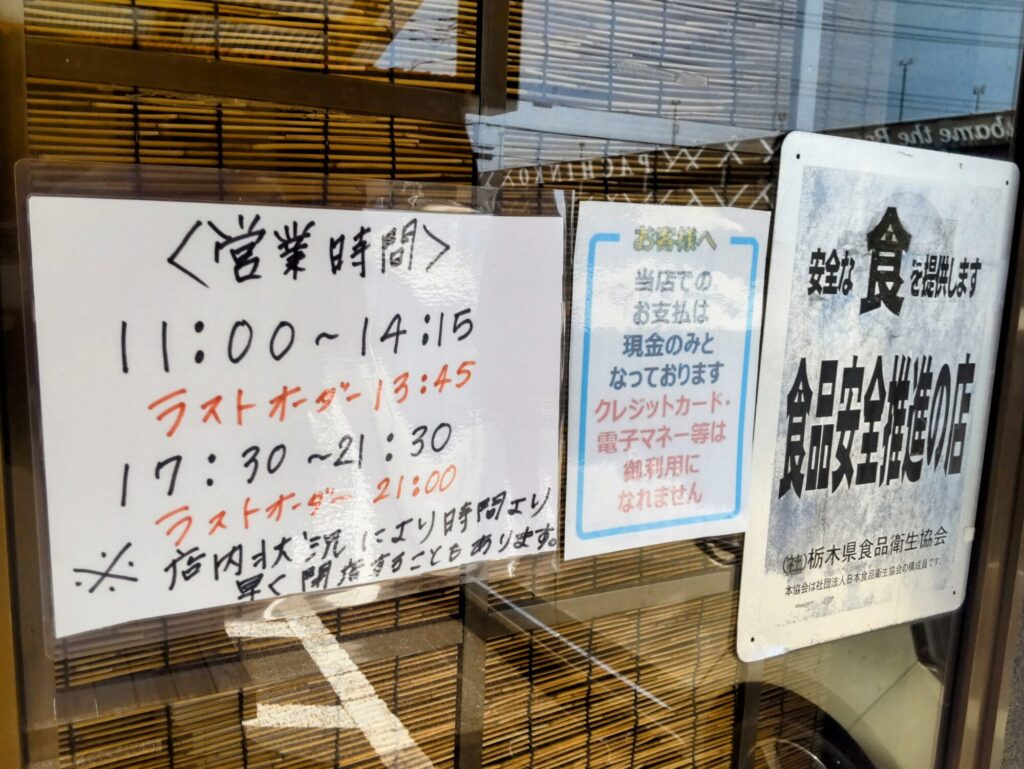 〈営業時間〉
11:00～14:15
ラストオーダー 13:45
17:30～21:30
ラストオーダー 21:00
※ 店内状況により時間より
早く閉店することもあります。
お客様へ
当店での
お支払は
現金のみと
なっております
クレジットカード・
電子マネー等は
御利用に
なれません
安全な食を提供します
食品安全推進の店
(社)栃木県食品衛生協会
本協会は社団法人日本食品衛生協会の構成員です.
PACHINKO
bame the